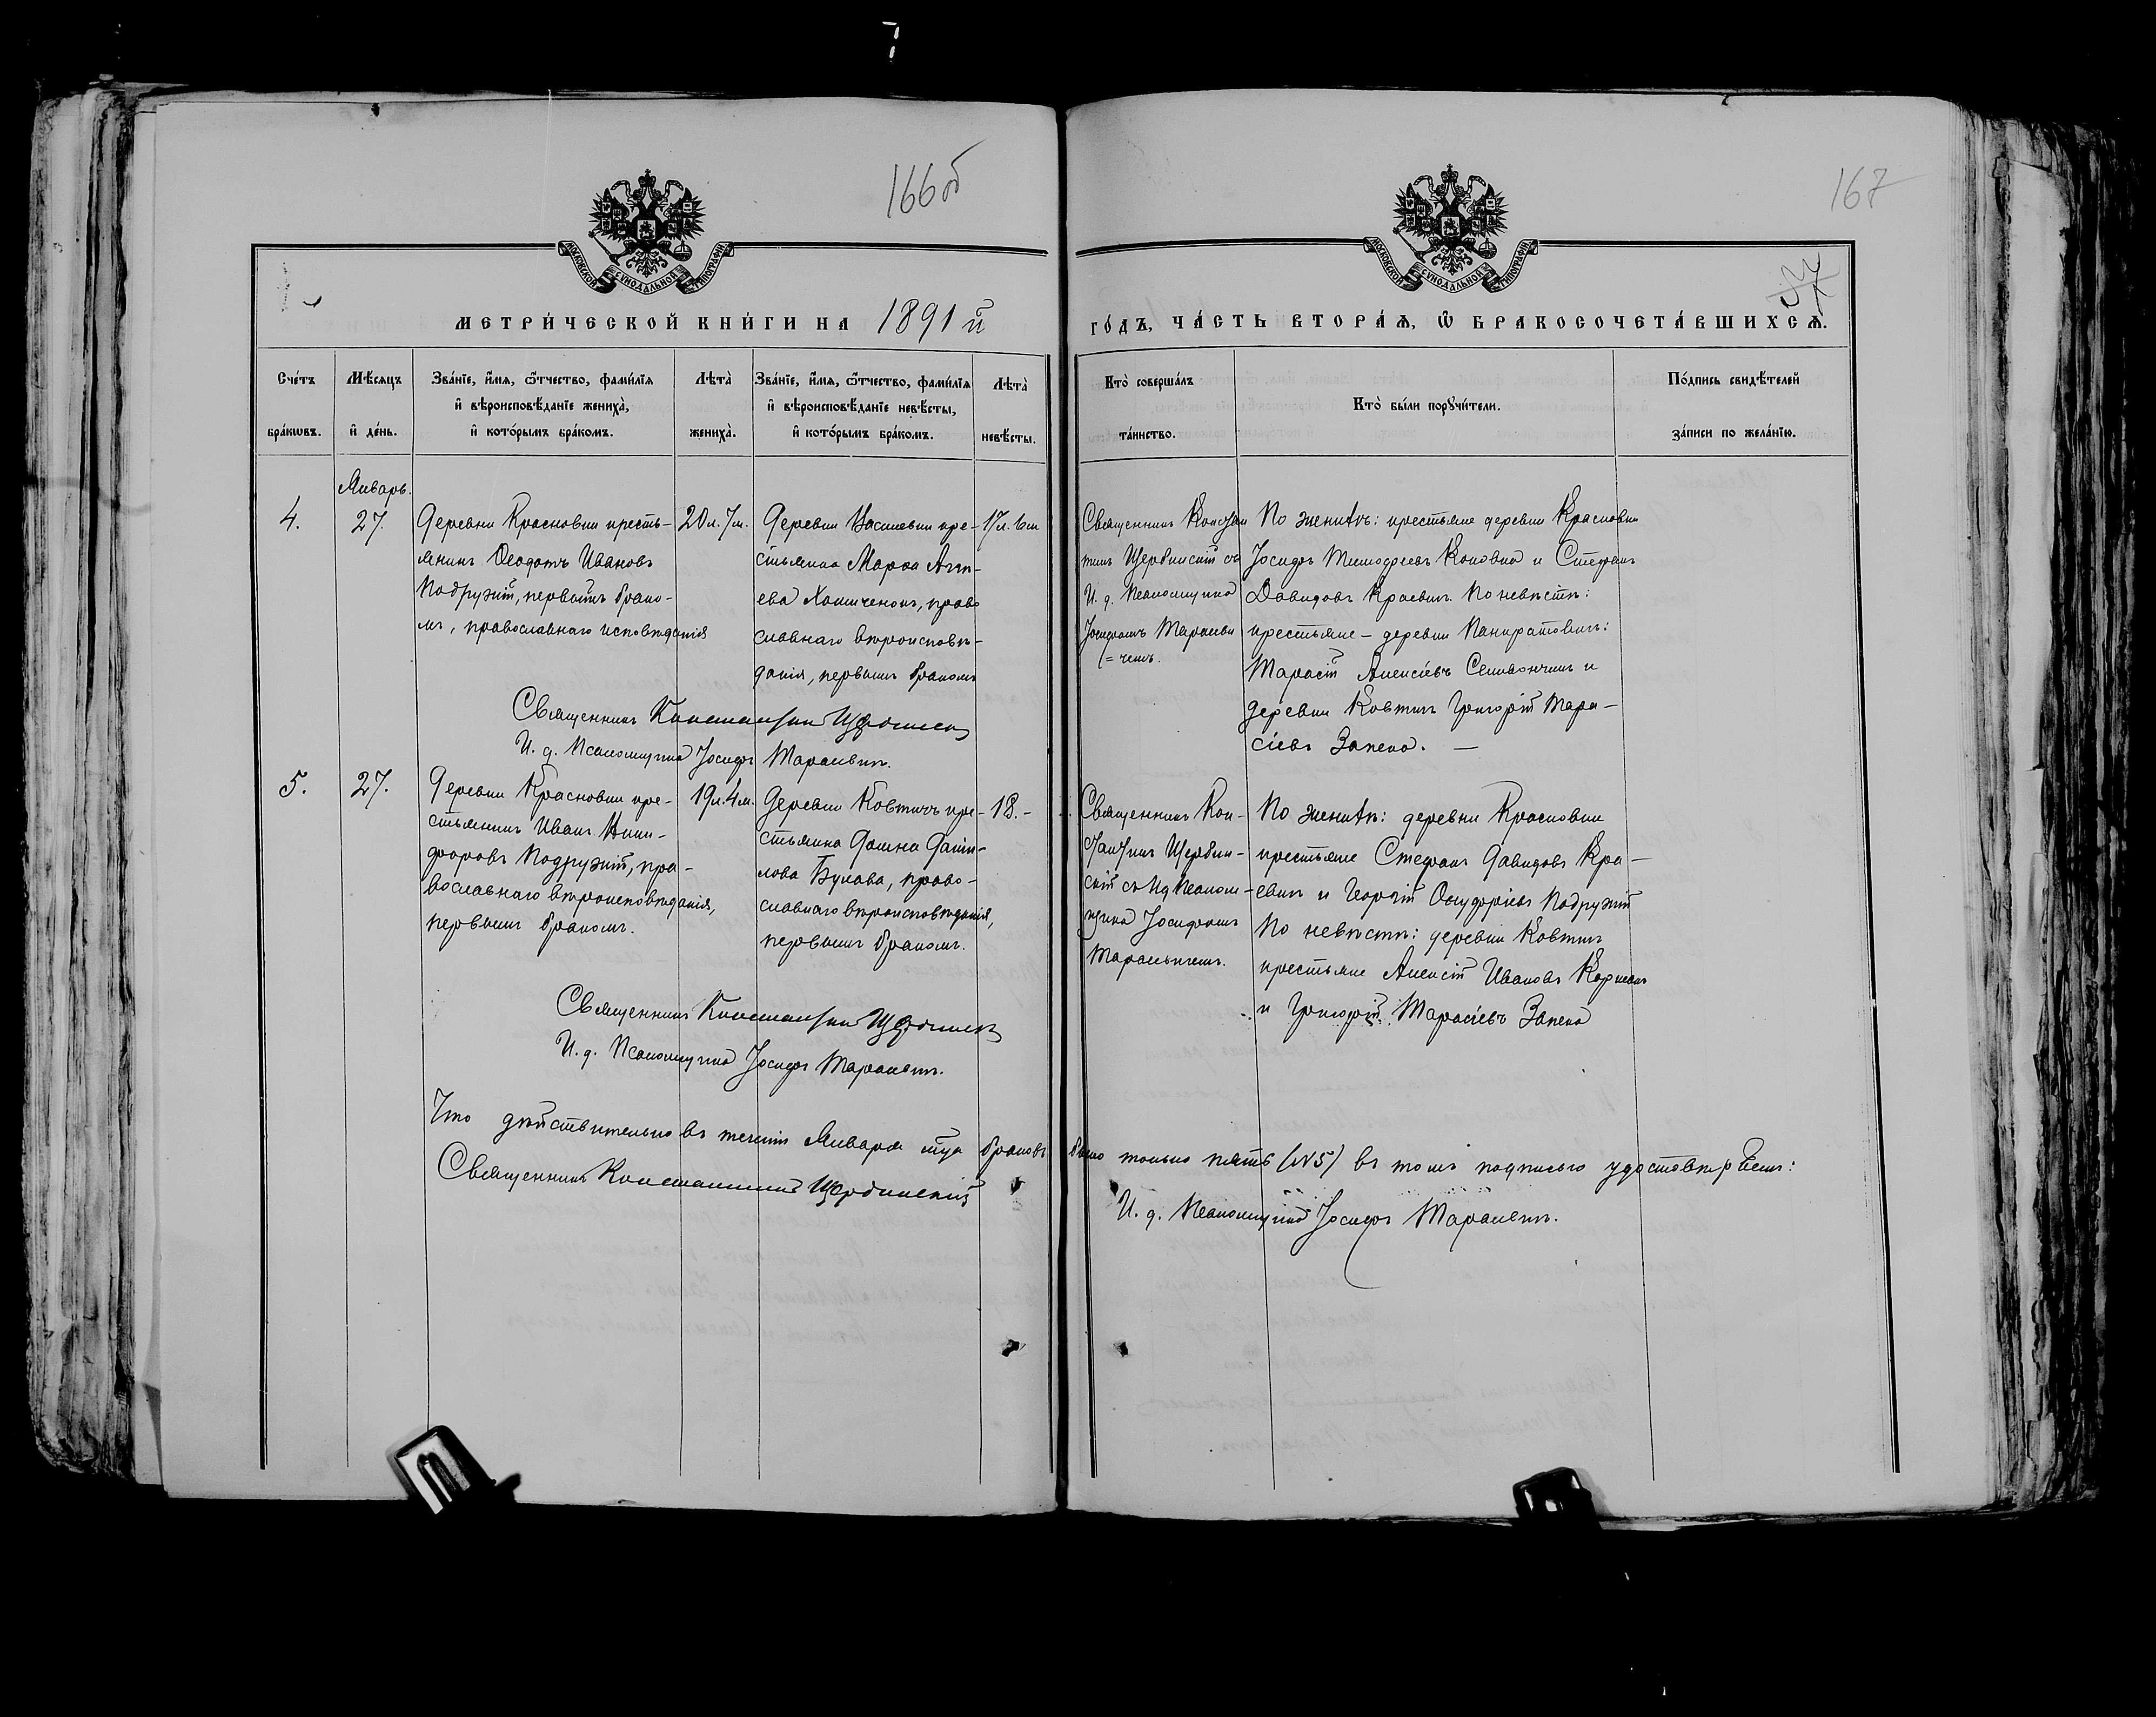 166об
167
МОСКОВСКОЙ СѴНОДАЛЬНОЙ ТИПОГРАФІИ
МОСКОВСКОЙ СѴНОДАЛЬНОЙ ТИПОГРАФІИ
МЕТРИ́ЧЕСКОЙ КНИ́ГИ НА 1891 й
ГО́ДЪ, ЧА́СТЬ ВТОРА́Ѧ, Ѡ҆ БРАКОСОЧЕТА́ВШИХСѦ.
Сче́тъ
бра́кѡвъ.
Мѣ́сѧцъ
и҆ де́нь.
Зва́нїе, и҆́мѧ, ѻ҆́тчество, фами́лїѧ
и҆ вѣроисповѣ́данїе жениха̀,
и҆ кото́рымъ бра́комъ.
Лѣта̀
жениха̀.
Зва́нїе, и҆́мѧ, ѻ҆́тчество, фами́лїѧ
и҆ вѣроисповѣ́данїе невѣ́сты,
и҆ кото́рымъ бра́комъ.
Лѣта̀
невѣ́сты.
Кто̀ соверша́лъ
та́инство.
Кто̀ бы́ли порꙋчи́тели.
По́дпись свидѣ́телей
за́писи по жела́нїю.
Январь.
4.
27.
Деревни Красновки кресть-
янинъ Ѳеодотъ Ивановъ
Подружій, первымъ брако-
мъ, православнаго исповѣданія
20 л. 7 м.
Деревни кре-
стьянка Марѳа
ева право
славнаго вѣроисповѣ-
данія, первымъ бракомъ
17 л. 6 м
Священникъ Констан
тинъ Щербинскій съ
И. д. Псаломщика
Іосифомъ Тараеви
=чемъ.
По женихѣ: крестьяне деревни Красновки
Іосифъ Тимофеевъ и Стефанъ
Давидовъ Краевичъ. По невѣстѣ:
крестьяне - деревни Панкратовичъ:
Тарасій Алексіевъ и
деревни Ковтичъ Григорій Тара-
сіевъ Запека. -
Священникъ Константинъ Щербинскій
И. д. Псаломщика Іосифъ Тараевичъ.
5.
27.
Деревни Красновки кре-
стьянинъ Иванъ Ники-
форовъ Подружій, пра-
вославнаго вѣроисповѣданія,
первымъ бракомъ.
19 л. 4 м.
Деревни Ковтичъ кре-
стьянка Фаина Даніи-
лова Булава, право-
славнаго вѣроисповѣданія,
первымъ бракомъ.
18. -
Священникъ Кон-
стантинъ Щербин-
скій съ И д Псалом-
щика Іосифомъ
Тараевичемъ.
По женихѣ: деревни Красновки
крестьяне Стефанъ Давидовъ Кра-
евичъ и Георгій Подружій
По невѣстѣ: деревни Ковтичъ
крестьяне Алексій Ивановъ
и Григорій Тарасіевъ Запека
Священникъ Константинъ Щербинскій
И. д. Псаломщика Іосифъ Тараевичъ.
Что дѣйствительно въ теченіи Января м-ца браковъ было только пять (№5) въ томъ подписью удостовѣряемъ:
Священникъ Константинъ Щербинскій
И. д. Псаломщика Іосифъ Тараевичъ.